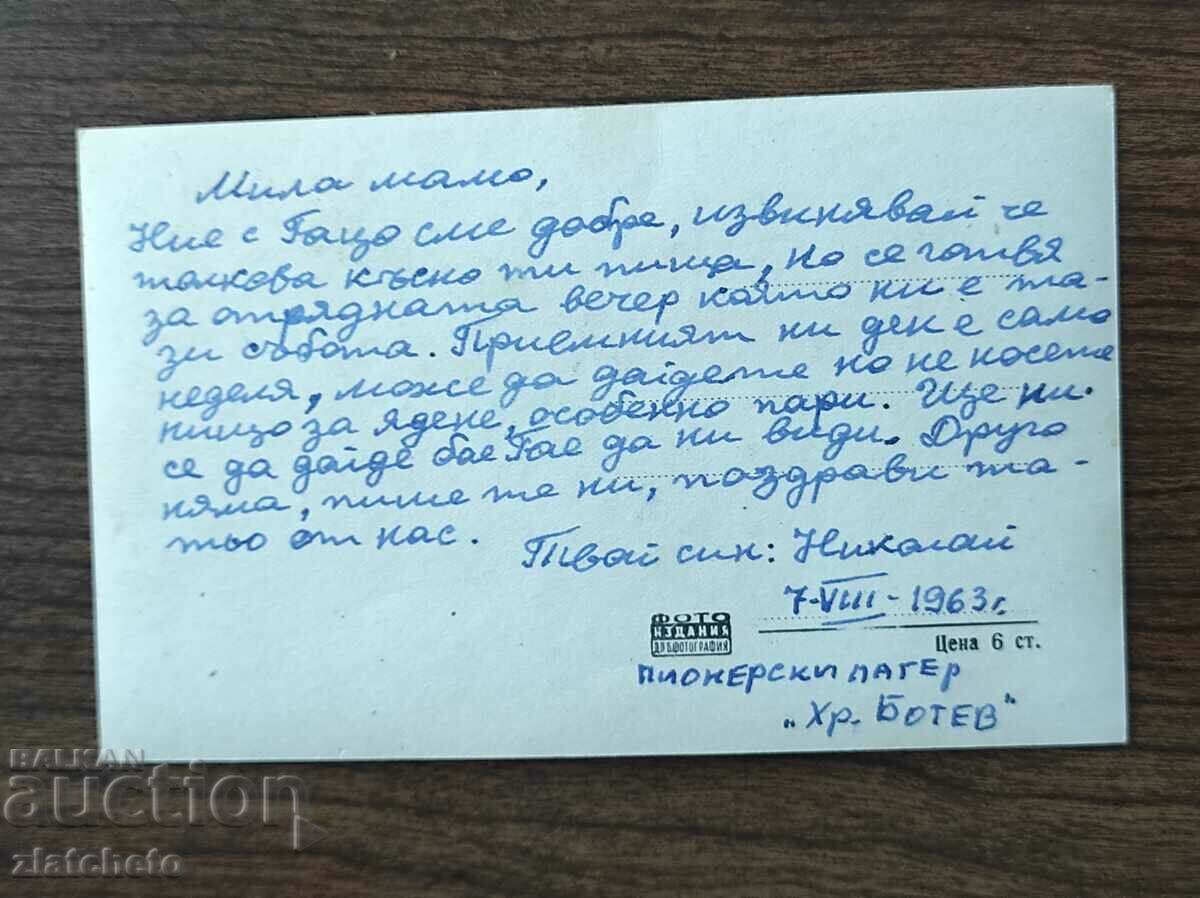 Мила мамо,
Ние с Гацо сме добре, извинявай че
толкова късно ти пиша, но се готвя
за отрядната вечер която ни е та-
зи събота. Приемният ни ден е само
неделя, може да дойдете но не носете
нищо за ядене, особенно пари. Ще ни
се да дойде бае Гае да ни види. Друго
няма, пише те ни, поздрави та-
тьо от нас.
Твой син: Николай
7-VIII-1963г.
ФОТО
ИЗДАНИЯ
ДП БЪЛФОТОГРАФИЯ
Цена 6 ст.
ПИОНЕРСКИ ЛАГЕР
„Хр. БОТЕВ"
BALKAN
auction
zlatcheto